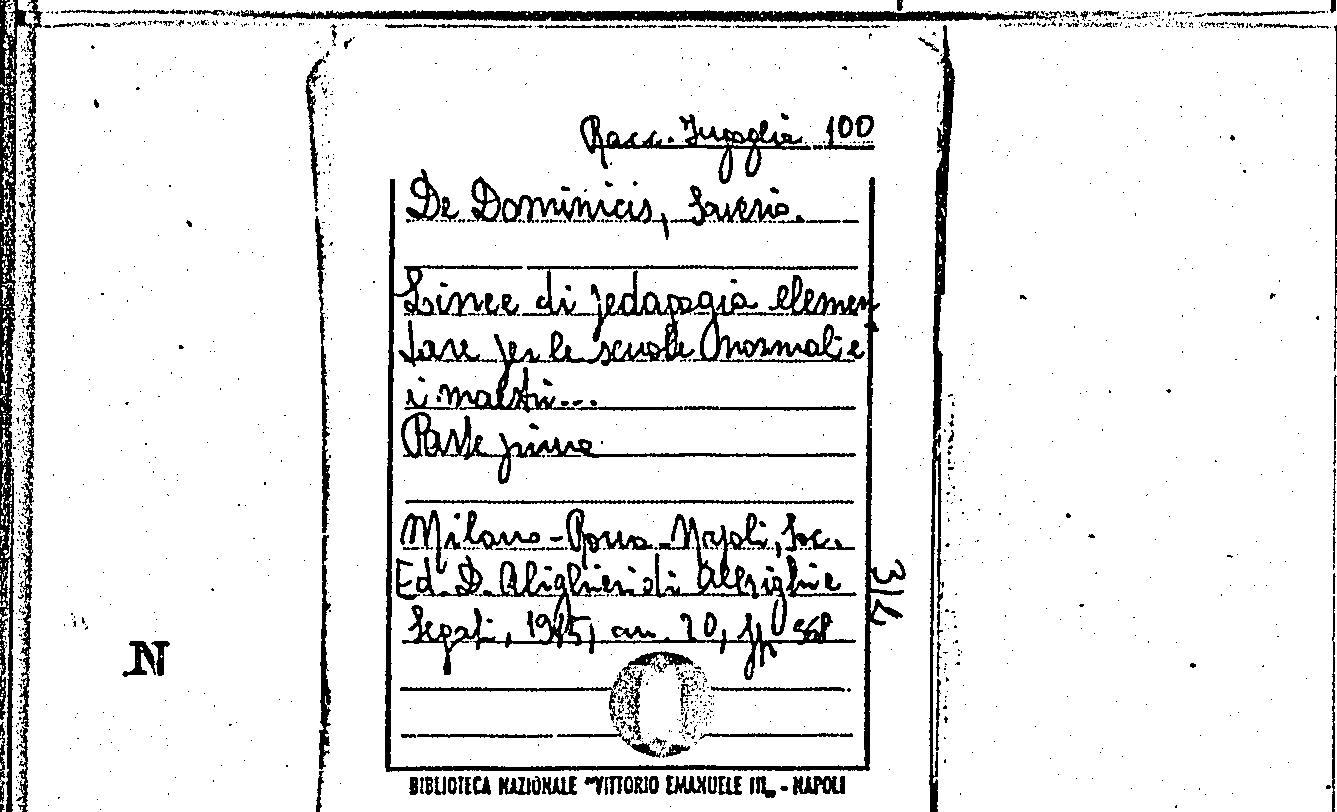 Racc. Fugaglia 100
De Dominicis, Saverio.
Linee di pedagogia elemen
tare per le scuole normali e
i maestri...
Parte prima
Milano-Roma-Napoli, Soc.
Ed. D. Alighieri di Albrighi e
Segati, 1915, cm. 20, pp
3/4
N
BIBLIOTECA NAZIONALE "VITTORIO EMANUELE III„ - NAPOLI